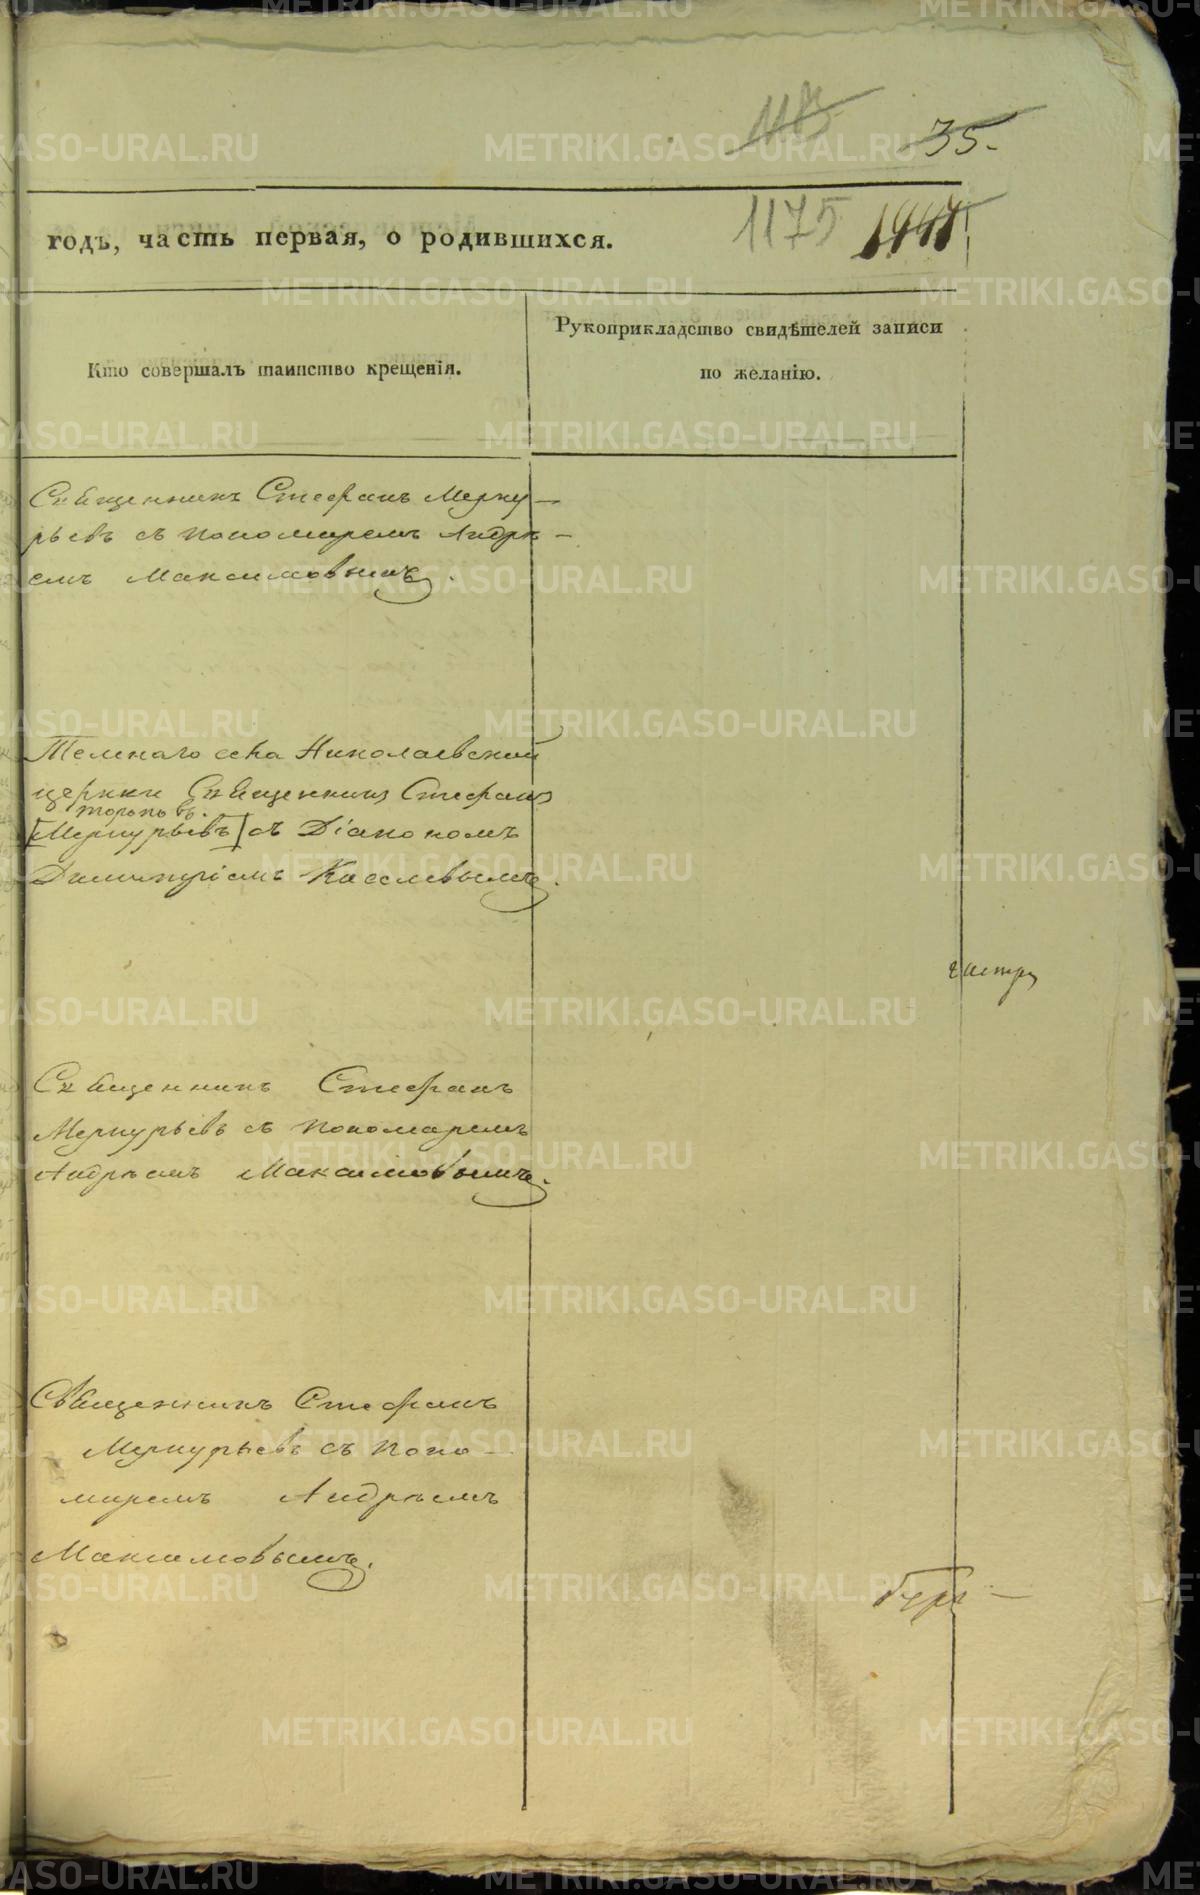 35.
1175
годъ, часть первая, о родившихся.
Кто совершалъ таинство крещенія.
Рукоприкладство свидѣтелей записи
по желанію.
Священникъ Стефанъ Мерку-
рьевъ съ пономаремъ Андрѣ-
емъ Максимовымъ.
села Николаевской
церкви Священникъ Стефанъ
Тороповъ.
[Меркурьевъ] съ Діакономъ
Димитріемъ Киселевымъ.
Священникъ Стефанъ
Меркурьевъ съ пономаремъ
Андрѣемъ Максимовымъ.
Священникъ Стефанъ
Меркурьевъ съ поно-
маремъ Андрѣемъ
Максимовымъ.
METRIKI.GASO-URAL.RU